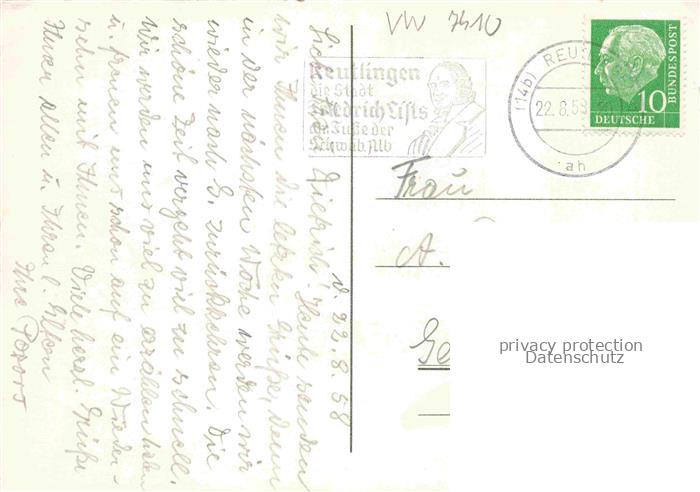 VW 7410
Reutlingen
die Stadt
Friedrich Lists
am Fuße der
Schwäb. Alb
(14b) REUTLINGEN
22.8.58
ah
10
DEUTSCHE
BUNDESPOST
Frau
A.
Ge
privacy protection
Datenschutz
d. 22.8.58
Liebe Dietrich! Heute senden
wir Ihnen die letzten Grüße, denn
in der nächsten Woche werden wir
wieder nach G. zurückkehren. Die
schöne Zeit vergeht viel zu schnell.
Wir werden uns viel zu erzählen haben
u. freuen uns schon auf ein Wieder-
sehn mit Ihnen. Viele herzl. Grüße
Ihnen allen u. Ihren l. Eltern
Ihre